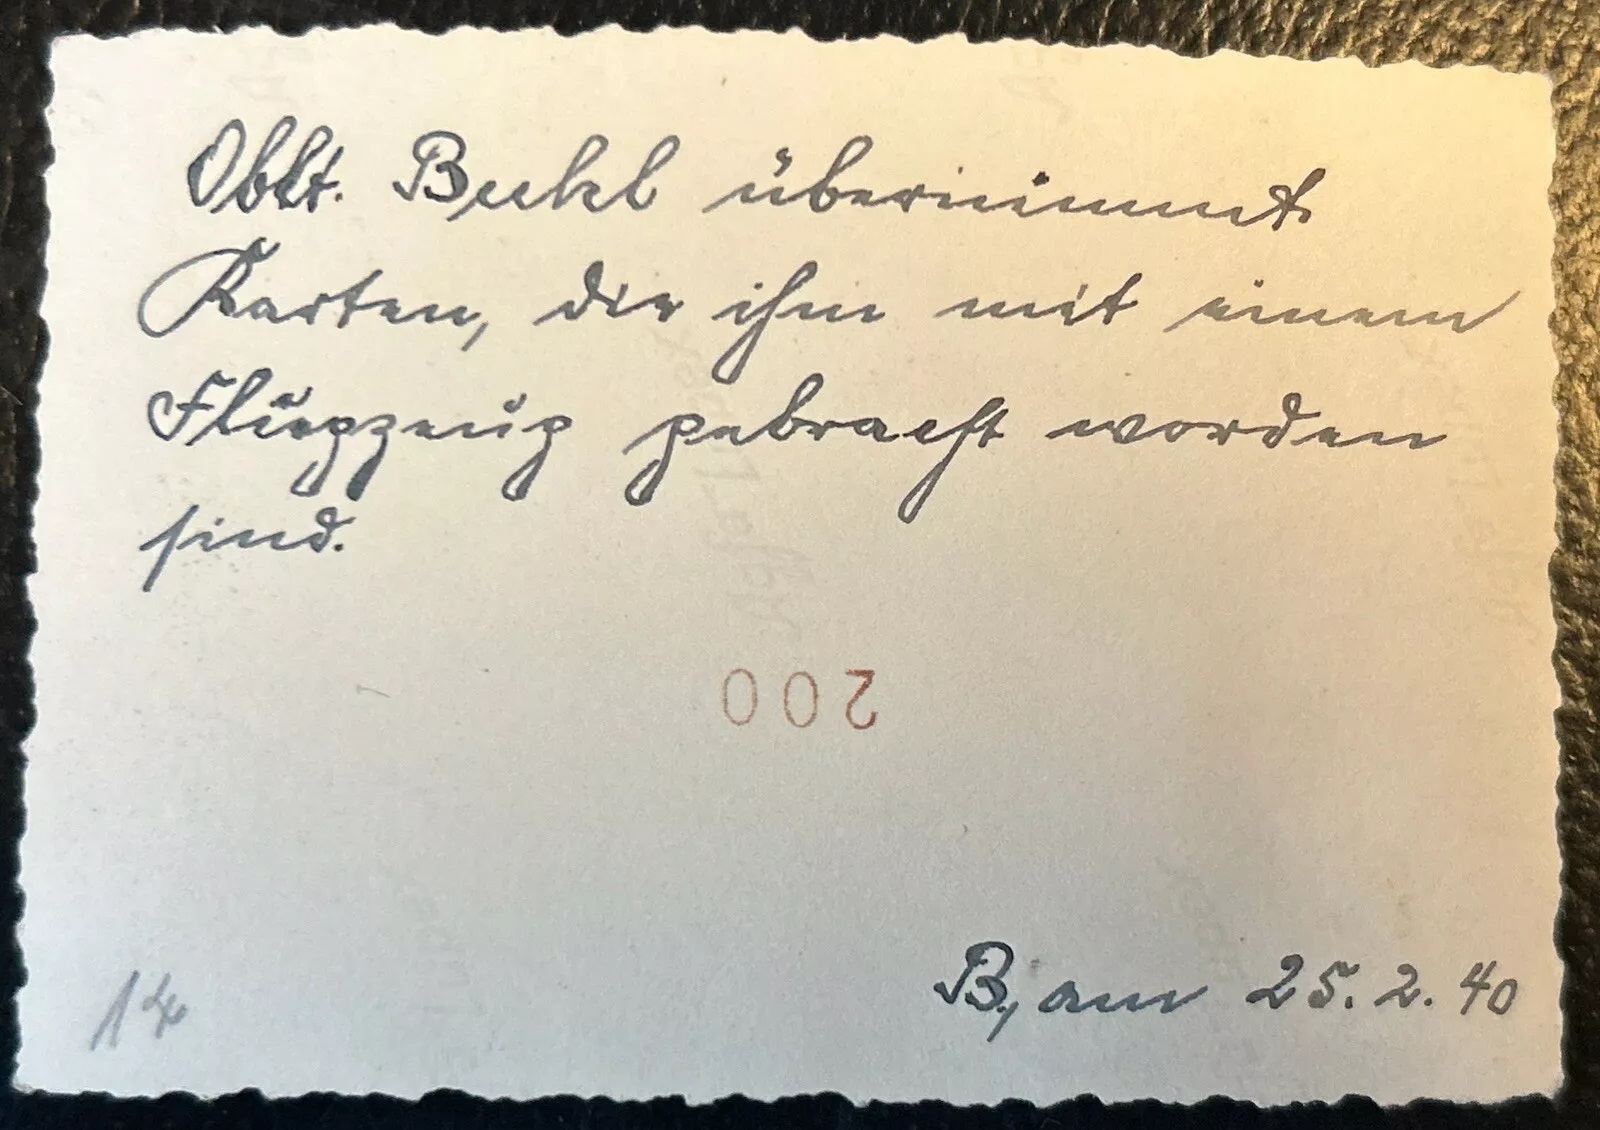 Oblt. Beckl übernimmt
Karten, die ihm mit einem
Flugzeug gebracht worden
sind.
200
14
B, am 25. 2. 40